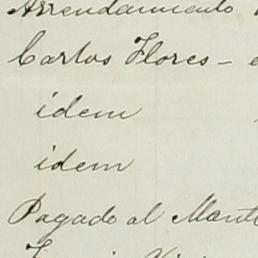 Arrendamiento
Carlos Flores -
idem
idem
Pagado al